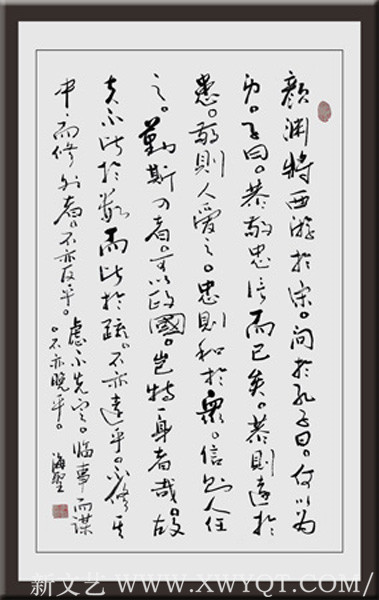 顔渊將西游於宋。问於孔子曰。何以为
身。子曰。恭敬忠信而已矣。恭則遠於
患。敬則人愛之。忠則和於衆。信则人任
之。勤斯四者。可以政國。岂特一身者哉。故
夫不比於数而比於疏。不亦遠乎。不修其
中而修外者。不亦反乎。虑不先定。临事而谋
。不亦晚乎。
海
新文艺 WWW.XWYQT.COM/